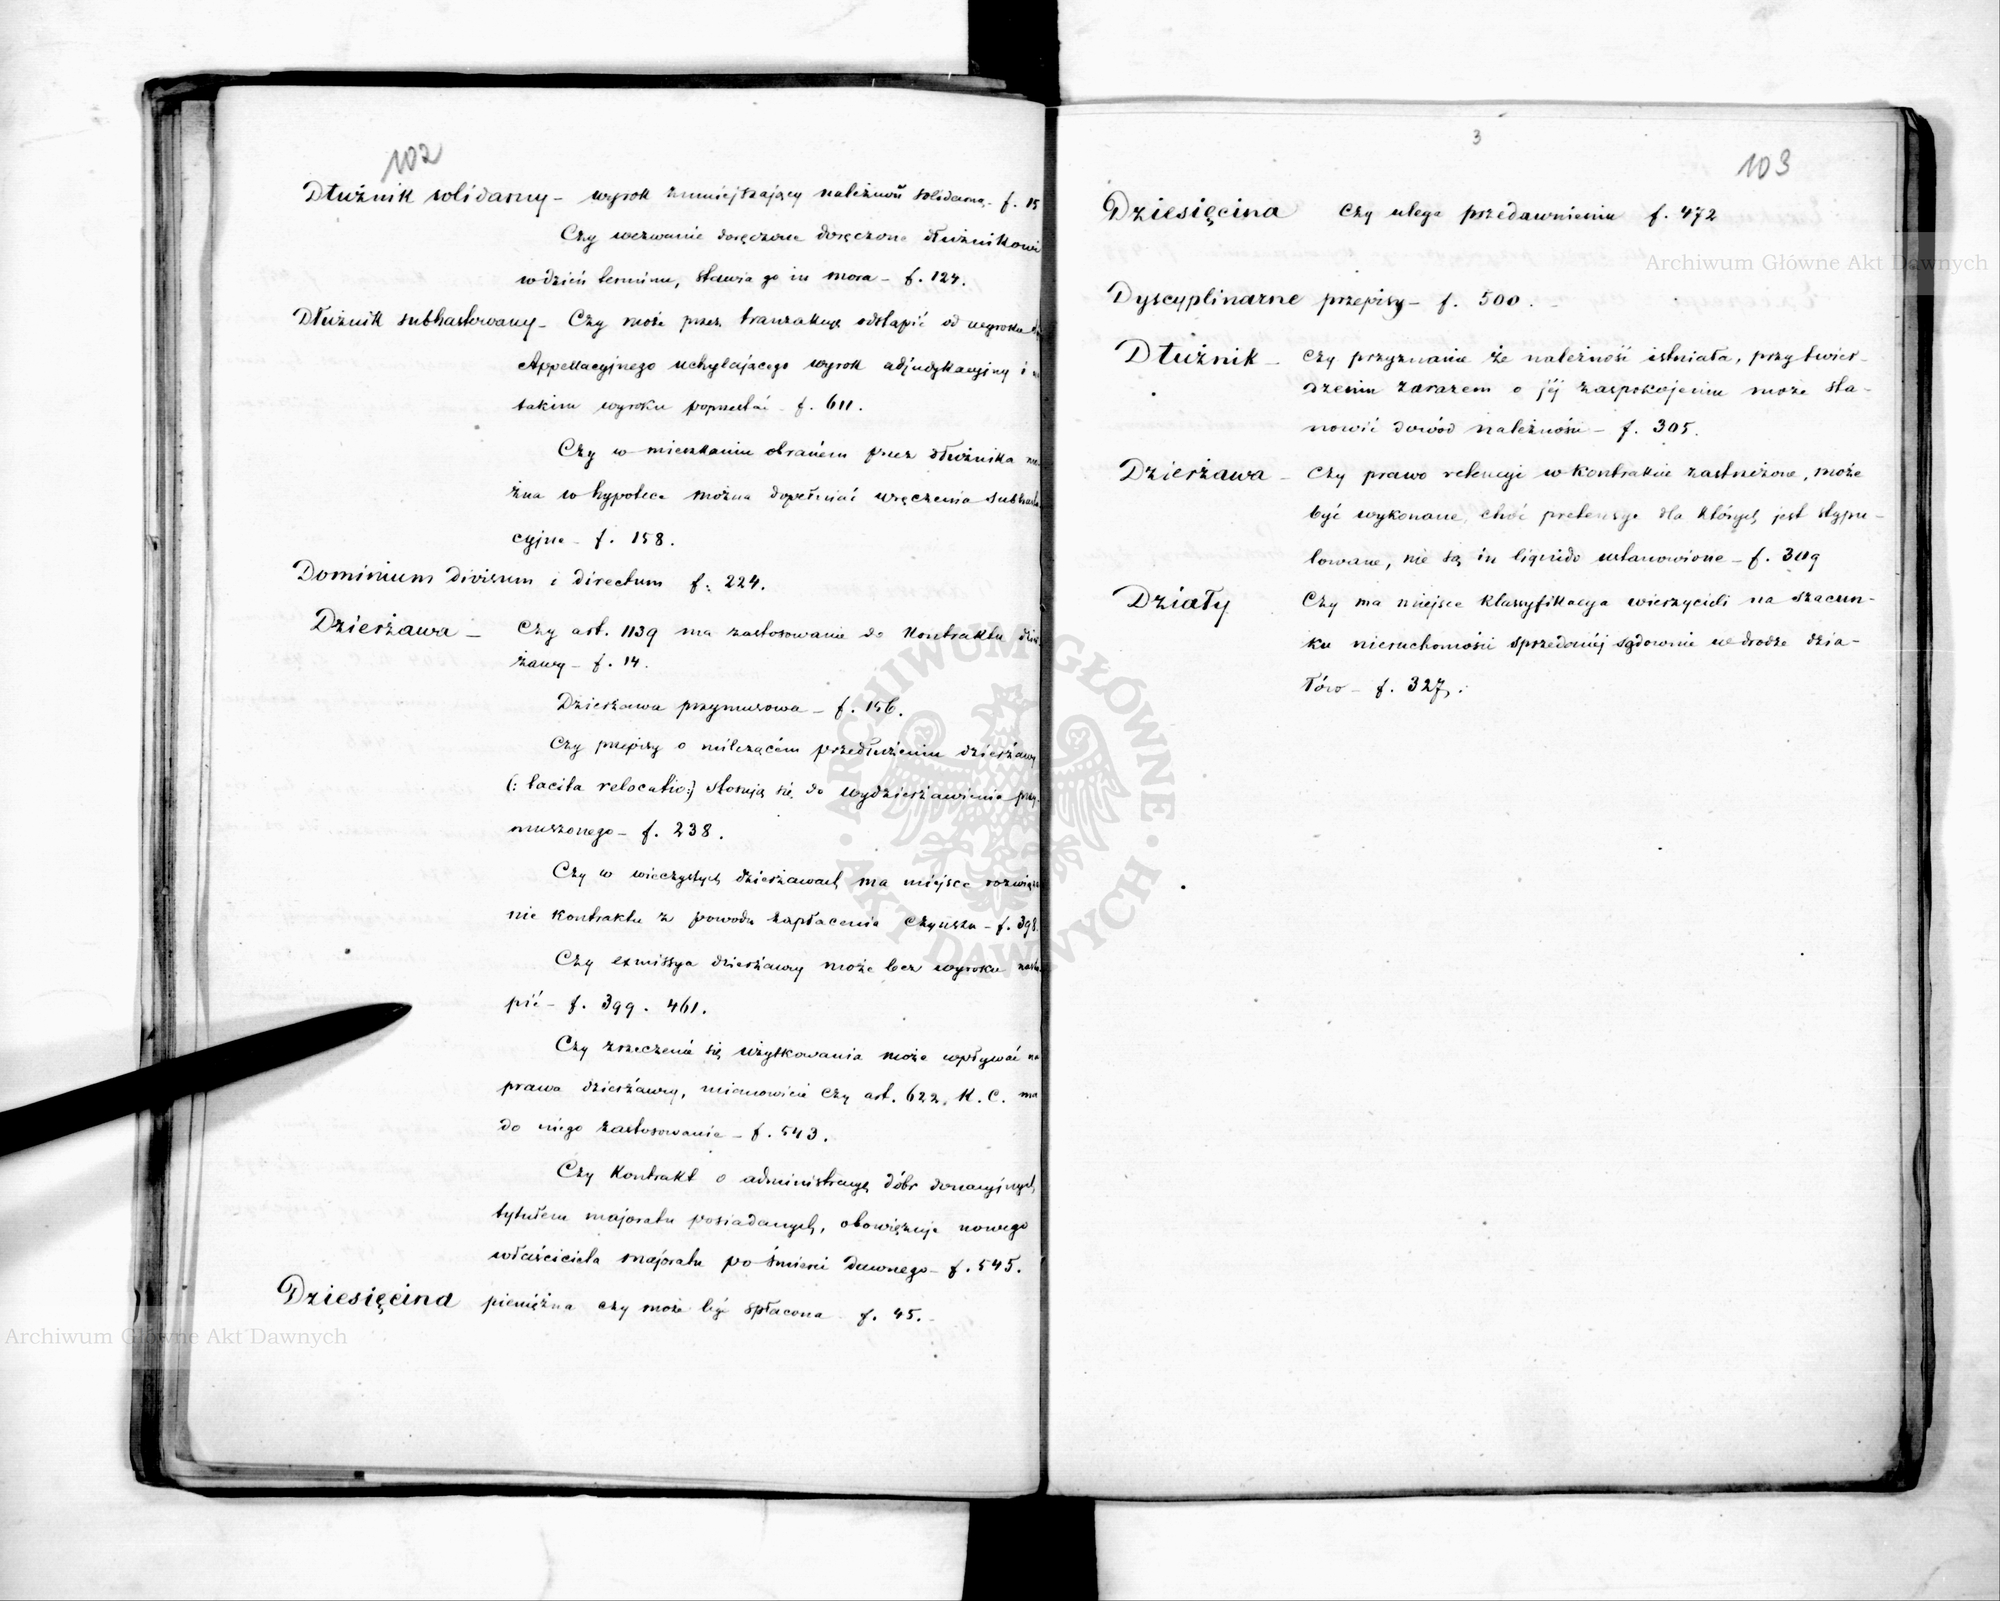 102
Dłużnik solidarny – wyrok zmniejszający należność solidarną – f. 15
Czy wezwanie doręczone doręczone dłużnikowi
w dzień terminu, stawia go in mora – f. 124.
Dłużnik subhastowany – Czy może przez tranzakcyę odstąpić od wyroku
Appellacyjnego uchylającego wyrok adjudykacyjny i
takim wyroku poprzestać – f. 611.
Czy w mieszkaniu obranem przez dłużnika
w hypotece można dopełniać wręczenia subhasta
cyjne – f. 158.
Dominium divisum i directum f. 224.
Dzierżawa – Czy art. 1139 ma zastosowanie do kontraktu dzier
żawy – f. 14.
Dzierżawa przymusowa – f. 156.
Czy przepisy o milczącém przedłużeniu dzierżawy
(: tacita relocatio:) stosują się do wydzierżawienia przy
muszonego – f. 238.
Czy w wieczystych dzierżawach ma miejsce rozwiąza
nie kontraktu z powodu zapłacenia czynszu – f. 398.
Czy exmissya dzierżawy może bez wyroku nastą
pić – f. 399. 461.
Czy zrzeczenie się użytkowania może wpływać na
prawa dzierżawcy, mianowicie czy art. 622. K. C. ma
do niego zastosowanie – f. 543.
Czy kontrakt o administracyę dóbr donacyjnych,
tytułem majoratu posiadanych, obowiązuje nowego
właściciela majoratu po śmierci dawnego – f. 545.
Dziesięcina pieniężna czy może być spłacona f. 45.
3
103
Dziesięcina Czy ulega przedawnieniu f. 472
Dyscyplinarne przepisy – f. 500.
Dłużnik – Czy przyznanie że należność istniała, przy twier-
dzeniu zarazem o jéj zaspokojeniu może sta-
nowić dowód należności – f. 305.
Dzierżawa – Czy prawo retencyi w kontrakcie zastrzeżone, może
być wykonane, choć pretensye dla których jest stypu-
lowane, nie są in liquido ustanowione – f. 319
Działy Czy ma miejsce klassyfikacya wierzycieli na szacun-
ku nieruchomości sprzedanéj sądownie w drodze dzia-
łów – f. 327.
Archiwum Główne Akt Dawnych
ARCHIWUM GŁÓWNE · AKT DAWNYCH ·
Archiwum Główne Akt Dawnych